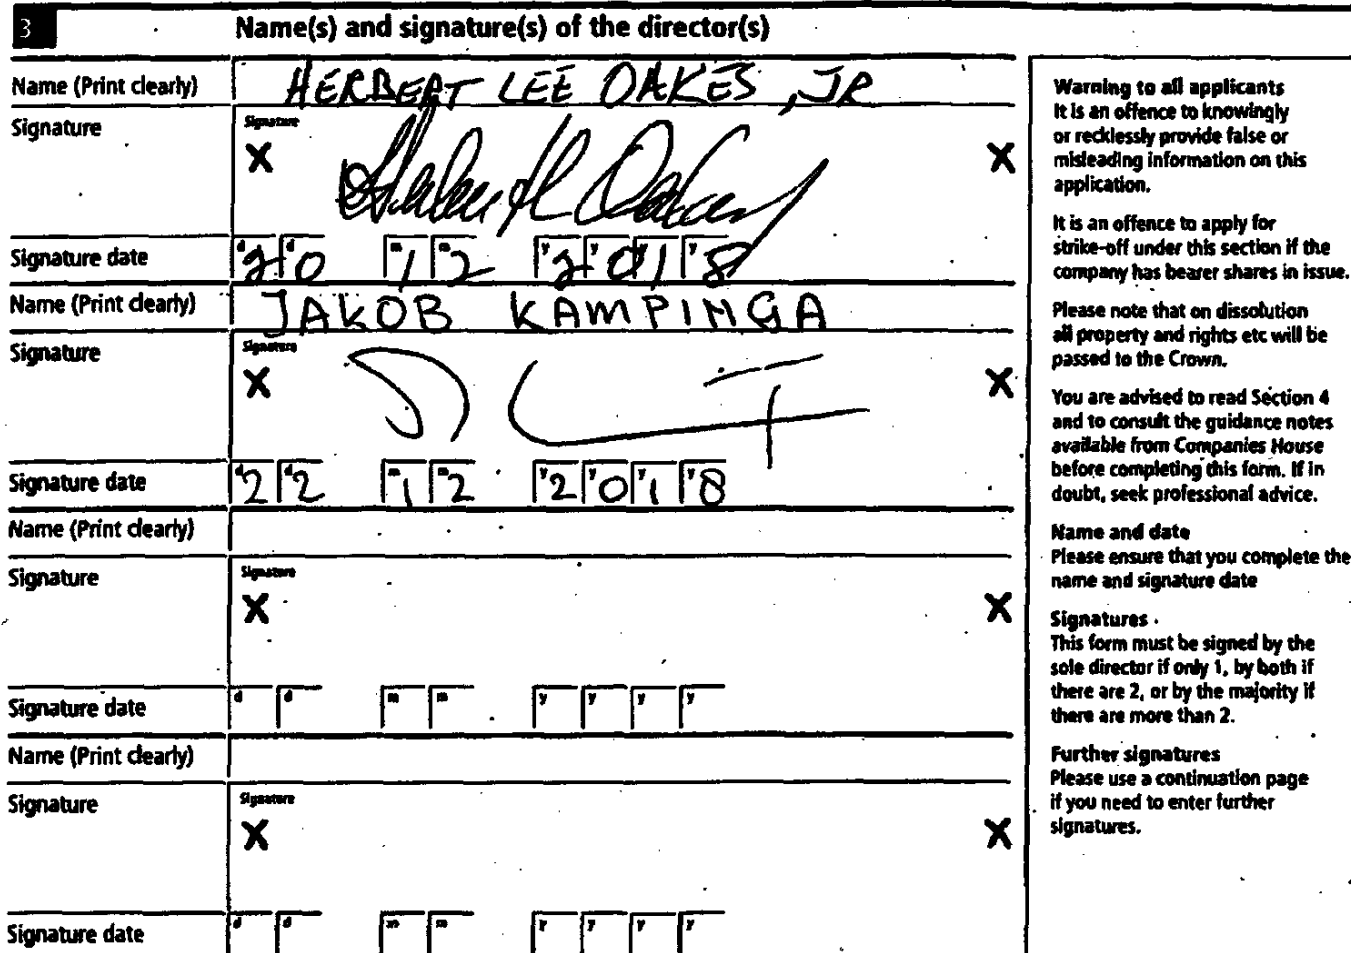 3 Name(s) and signature(s) of the director(s)
Name (Print clearly) HERBERT LEE OAKES, JR
Signature
Signature
X X
Signature date d d m m y y y y
20 12 2018
Name (Print clearly) JAKOB KAMPINGA
Signature
Signature
X X
Signature date d d m m y y y y
22 12 2018
Name (Print clearly)
Signature
Signature
X X
Signature date d d m m y y y y
Name (Print clearly)
Signature
Signature
X X
Signature date d d m m y y y y
Warning to all applicants
It is an offence to knowingly
or recklessly provide false or
misleading information on this
application.
It is an offence to apply for
strike-off under this section if the
company has bearer shares in issue.
Please note that on dissolution
all property and rights etc will be
passed to the Crown.
You are advised to read Section 4
and to consult the guidance notes
available from Companies House
before completing this form. If in
doubt, seek professional advice.
Name and date
Please ensure that you complete the
name and signature date
Signatures
This form must be signed by the
sole director if only 1, by both if
there are 2, or by the majority if
there are more than 2.
Further signatures
Please use a continuation page
if you need to enter further
signatures.